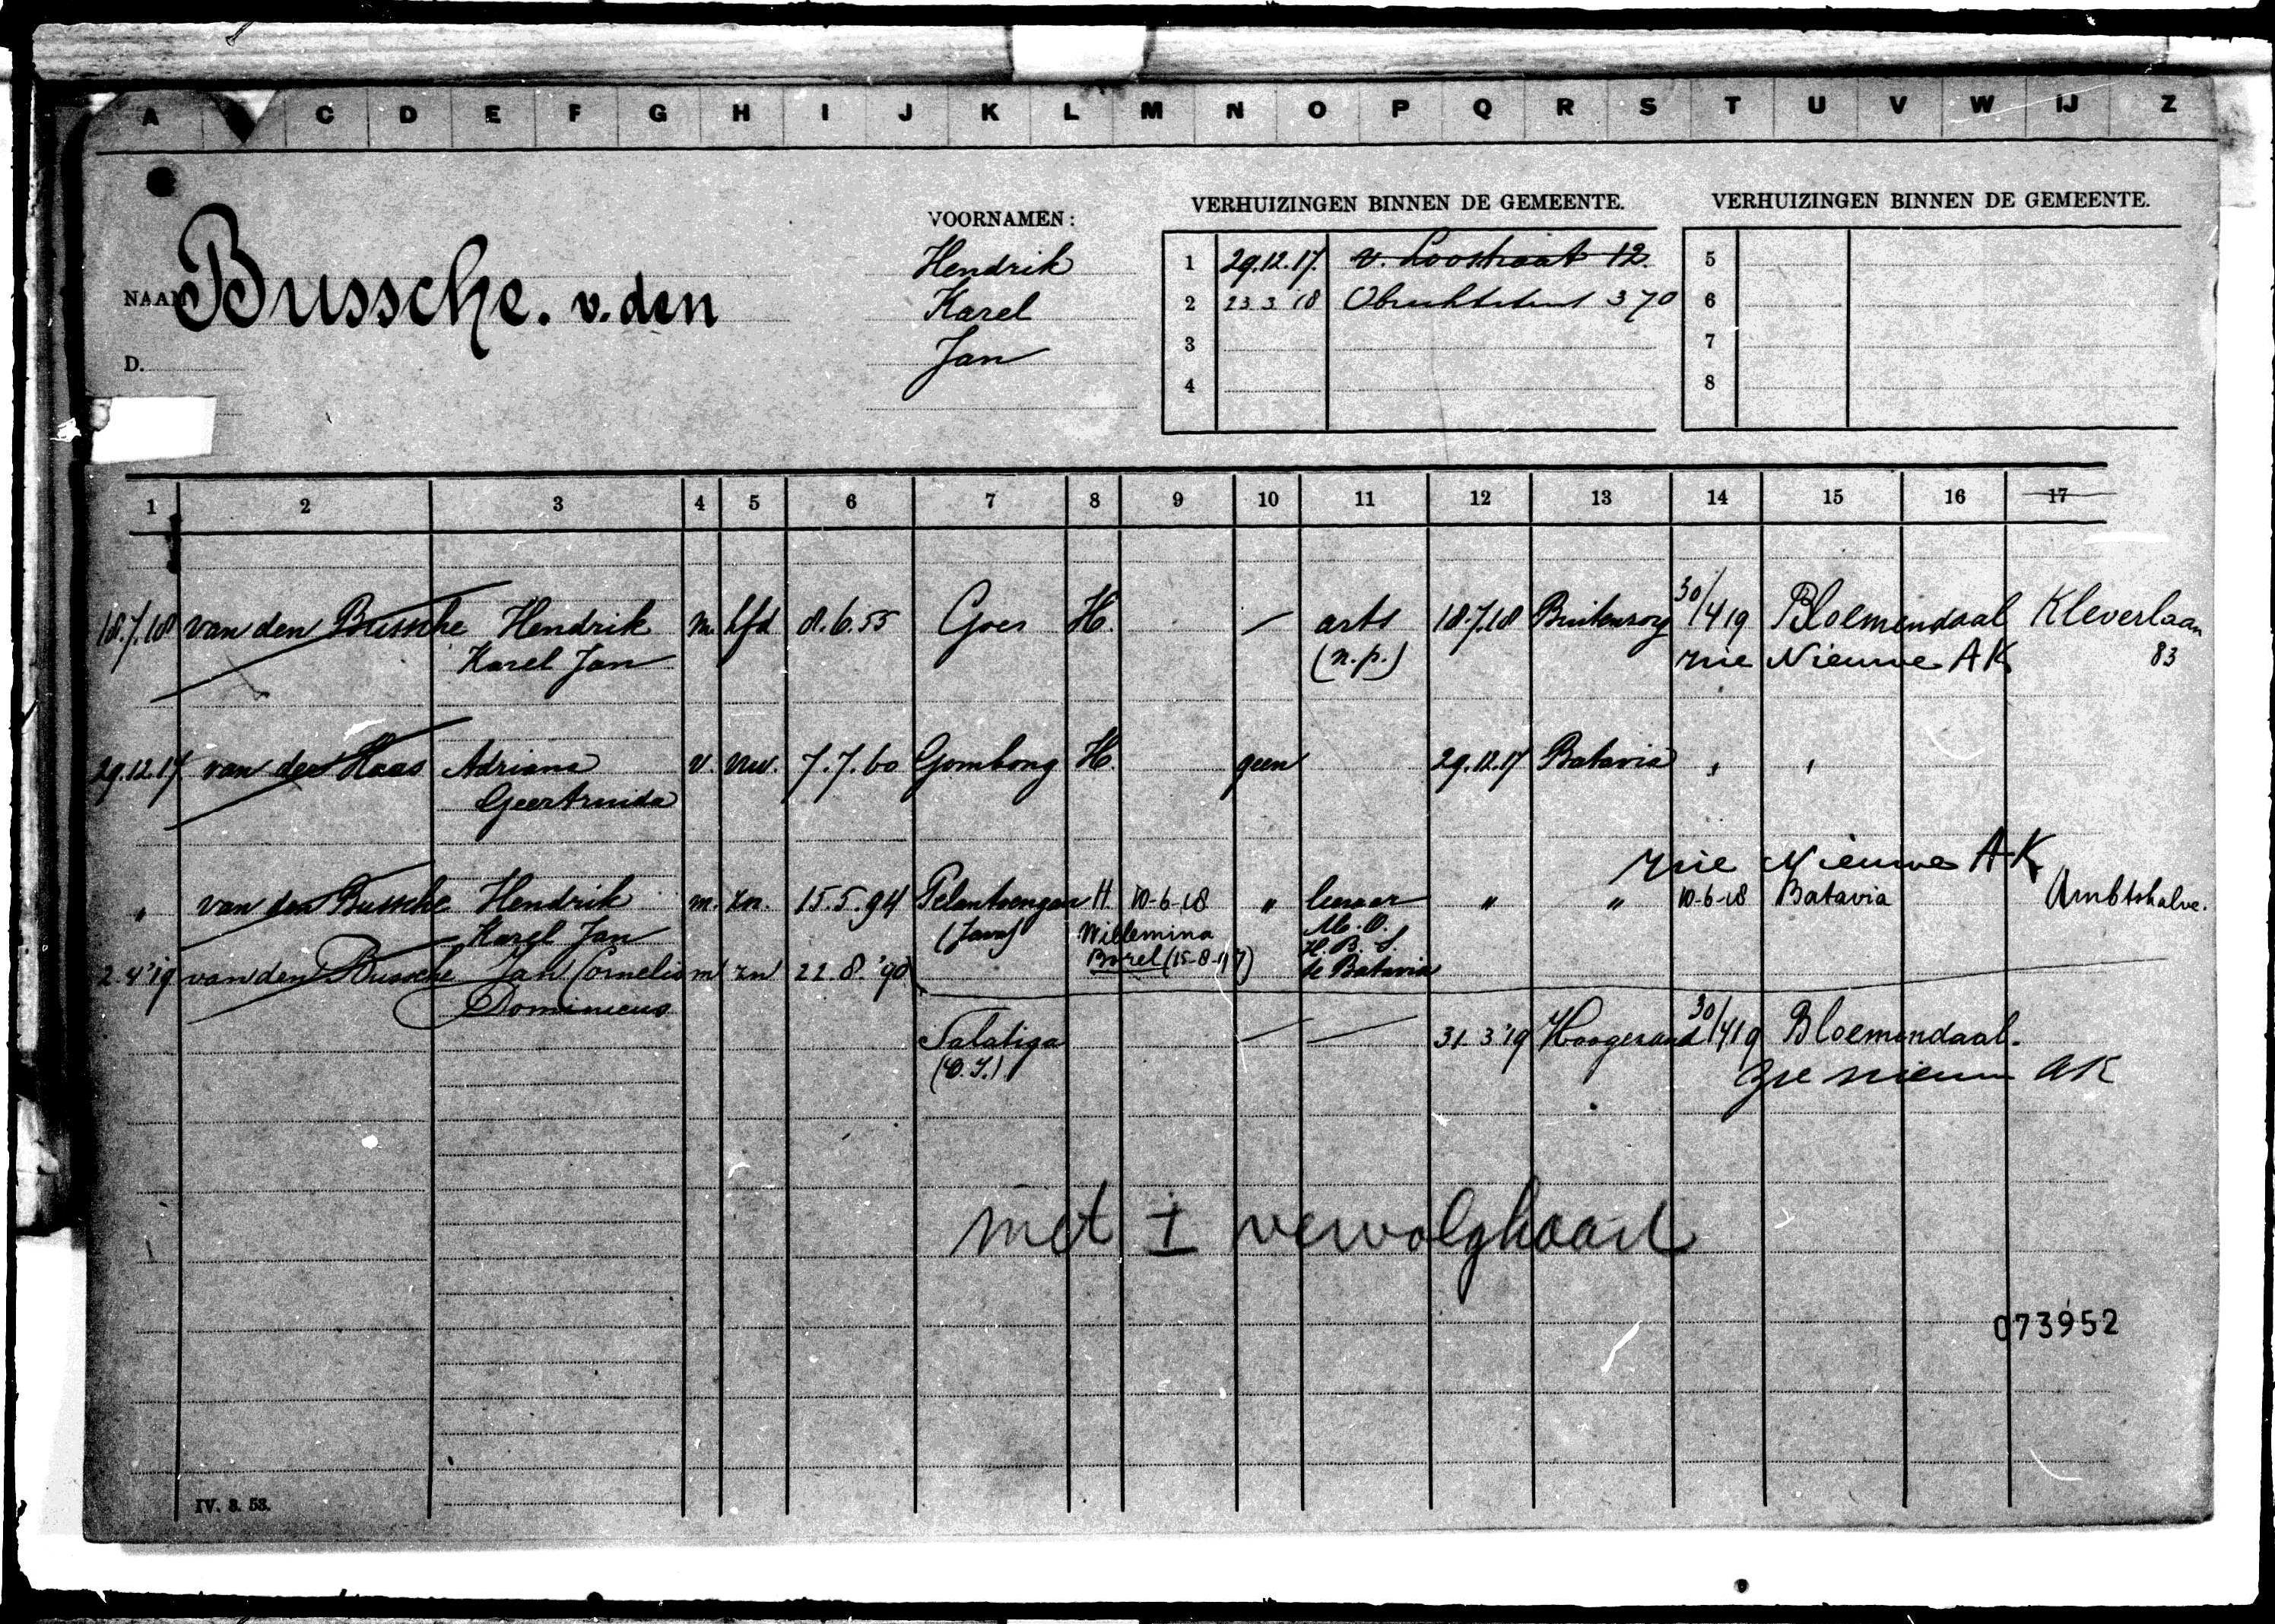 A C D E F G H I J K L M N O P Q R S T U V W IJ Z
VERHUIZINGEN BINNEN DE GEMEENTE. VERHUIZINGEN BINNEN DE GEMEENTE.
VOORNAMEN:
NAAM Bussche. v. den
D.
Hendrik
Karel
Jan
1 29.12.17. v. Loostraat 12.
2 23 3 '18 Obrechtstraat 370
3
4
5
6
7
8
1 2 3 4 5 6 7 8 9 10 11 12 13 14 15 16 17
18.7.18 van den Bussche Hendrik m. hfd 8.6.55 Goes H. — arts 18.7.18 Buitenzorg 30/4 19 Bloemendaal Kleverlaan
Karel Jan (n.p.) zie Nieuwe AK 83
29.12.17 van der Haas Adriana v. vw. 7.7.60 Gombong H. geen 29.12.17 Batavia " "
Geertruida
zie Nieuwe AK
" van den Bussche Hendrik m. zn. 15.5.94 Pelantoengan H. 10-6-18 " leeraar " " 10-6-18 Batavia Ambtshalve.
Karel Jan (Java) Willemina M.O.
Borel (15-8-17) H.B.S.
te Batavia
2.4'19 van den Bussche Jan Cornelis m zn 22.8.'90
Dominicus
Salatiga — — 31.3'19 Hoogezand 30/4 19 Bloemendaal.
(O.I.) Zie nieuw AK
met 1 vervolgkaart
073952
IV. 3. 53.